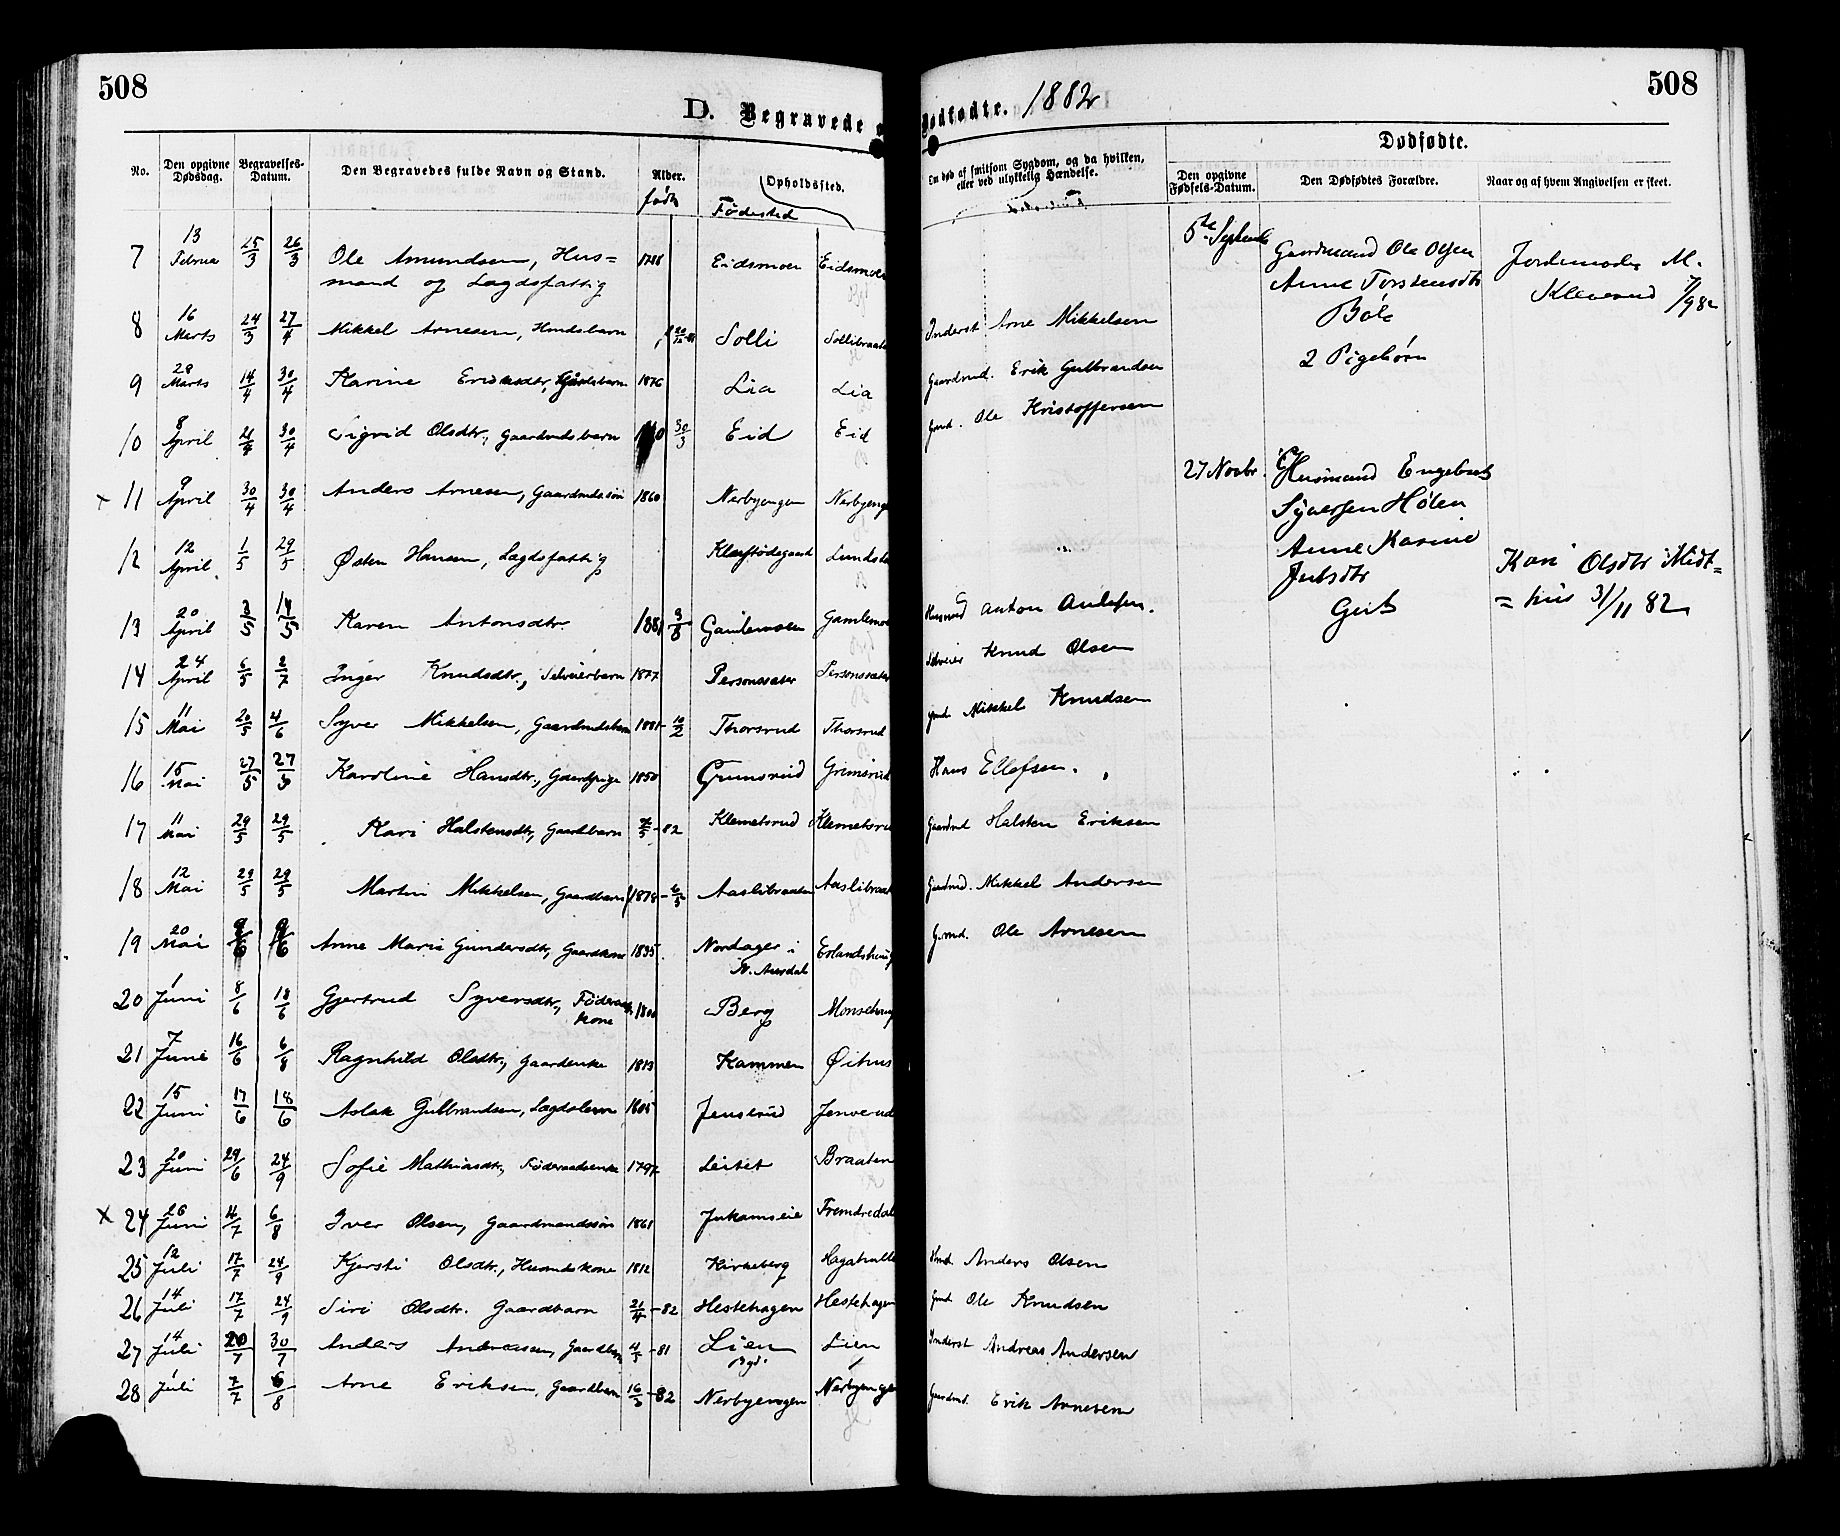 508
D. Begravede o
No.
Den opgivne Dødsdag.
Begravelses-Datum.
Den Begravedes fulde Navn og Stand.
Alder.
født
Opholdssted.
Fødested
7 13 Februar 25/3 26/3 Ole Amundsen, Hus=
mand og Lægdsfattig 1788 Eidsmoen Eidsmoen
8 16 Marts 24/3 27/4 Mikkel Arnesen, Hmdsbarn Solli Sollibraate
9 28 Marts 14/4 30/4 Karine Eriksdtr, Gårdsbarn 1876 Lia Lia
10 8 April 21/4 30/4 Sigrid Olsdtr, Gaardmdsbarn 30/3 Eid Eid
x 11 9 April 30/4 30/4 Anders Arnesen, Gaardmdssøn 1860 Nerbyengen Nerbyeng
12 12 April 1/5 29/5 Østen Hansen, Lægdsfattig Lunds
13 20 April 3/5 14/5 Karen Antonsdtr. 1881 3/8 Gamlemoen Gamlemoe
14 24 April 6/5 2/7 Inger Knudsdtr, Selveierbarn 1877 Personssæter Personssæter
15 11 Mai 20/5 4/6 Syver Mikkelsen, Gaardmdsbarn 1881- 10/2 Thorsrud Thorsrud
16 15 Mai 27/5 27/5 Karoline Hansdtr, Gaardpige 1850 Grimsrud Grimsrud
17 11 Mai 29/5 29/5 Kari Halstensdtr, Gaardbarn 7/5-82 Klemetsrud Klemetsru
18 12 Mai 29/5 29/5 Martin Mikkelsen, Gaardbarn 1878- 6/5 Aaslibraaten Aaslibraat
19 20 Mai 9/6 9/6 Anne Marie Gundersdtr, Gaardkone 1835 Nordager i
N. Aurdal Erlandshaug
20 1 Juni 8/6 18/6 Gjertrud Syversdtr, Føderaads
kone 1800 Berg Monsehaug
21 7 Juni 16/6 6/8 Ragnhild Olsdtr, Gaardenke 1813 Kammen Øihus
22 15 Juni 17/6 18/6 Aslak Gulbrandsen, Lægdslem 1805 Jensrud Jenserud
23 20 Juni 29/6 24/9 Sofie Mathiasdtr, Føderaadsenke 1797 Leitet Braaten
x 24 26 Juni 4/7 6/8 Iver Olsen, Gaardmandssøn 1861 Fremdredal
25 12 Juli 17/7 24/9 Kjersti Olsdtr, Husmdskone 1812 Kirkeberg
26 14 Juli 17/7 24/9 Siri Olsdtr. Gaardbarn 21/4-82 Hestehagen Hestehagen
27 14 Juli 20/7 30/7 Anders Andreassen, Gaardbarn 4/5-81 Lien Lien
28 1 Juli 7/7 6/8 Arne Eriksen, Gaardbarn 16/3-82 Nerbyengen Nerbyenge
508
Dødfødte. 1882
Om død af smitsom Sygdom, og da hvilken,
eller ved ulykkelig Hændelse.
Dødfødte.
Den opgivne Fødsels-Datum.
Den Dødfødtes Forældre.
Naar og af hvem Angivelsen er skeet.
5te Septemb Gaardmand Ole Olsen
Anne Torstensdtr
Bøle
2 Pigebørn
Jordemoder M.
Kleverud 7/9 82
Inderst Arne Mikkelsen
Gaardmd. Erik Gulbrandsen
Gmd. Ole Kristoffersen
27 Novbr. Husmand Engebret
Syversen Hølen
Anne Karine
Gut
Kari Olsdtr Midt=
=hus 31/11 82
Husmd Anton Andersen.
Selveier Knud Olsen
Gmd Mikkel Knudsen
Hans Ellefsen.
Gaardmd Halsten Eriksen
Gaardmd. Mikkel Andersen
Grmd. Ole Arnesen
Hmd. Anders Olsen
Gmd Ole Knudsen
Inderst Andreas Andersen
Gaardmd. Erik Arnesen